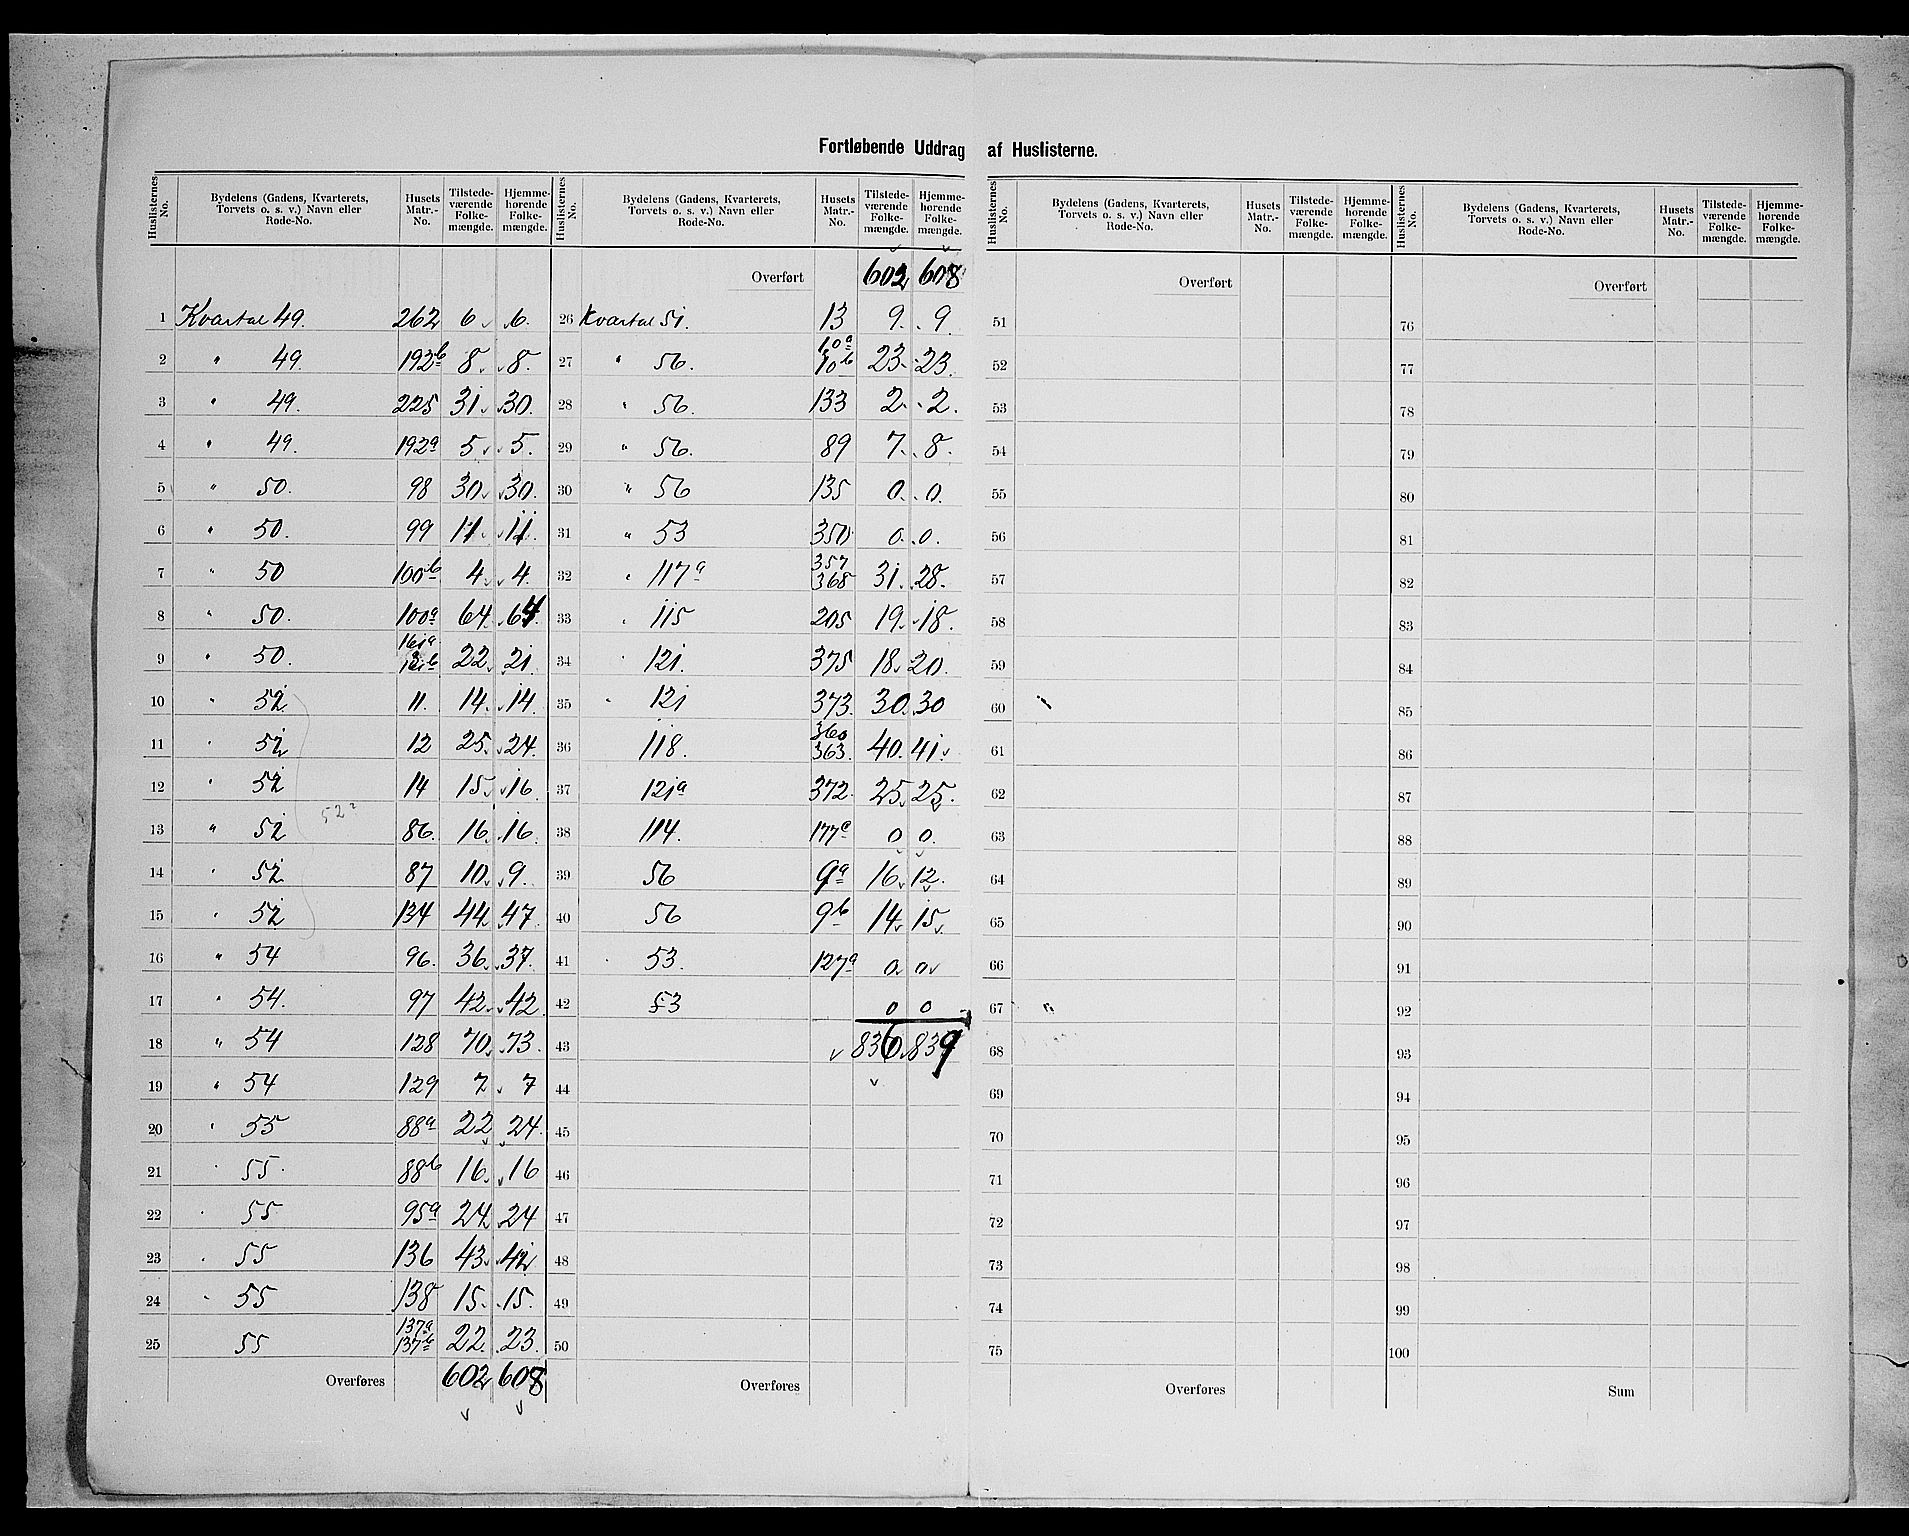 Fortløbende Uddrag af Huslisterne.
Huslisternes No. | Bydelens (Gadens, Kvarterets, Torvets o. s. v.) Navn eller Rode-No. | Husets Matr.-No. | Tilstedeværende Folkemængde. | Hjemmehørende Folkemængde.
1 Kvartal 49. 262 6 6.
2 " 49. 192b 8 8.
3 " 49. 225 31 30.
4 " 49. 192a 5 5.
5 " 50. 98 30 30.
6 " 50. 99 11 11.
7 " 50 100b 4 4.
8 " 50. 100a 64 64.
9 " 50. 161a 22 21
10 " 52 11. 14 14.
11 " 52 12 25 24.
12 " 52 14 15 16.
52?
13 " 52 86. 16 16.
14 " 52 87 10 9.
15 " 52 134 44 47.
16 " 54 96. 36 37.
17 " 54. 97 42 42
18 " 54 128 70 73.
19 " 54 129 7 7
20 " 55 88a 22 24.
21 " 55. 88b 16 16
22 " 55 95a 24 24
23 " 55 136 43 42
24 " 55 138 15 15.
25 55 137a 137b 22. 23.
Overføres 602 608
Huslisternes No. | Bydelens (Gadens, Kvarterets, Torvets o. s. v.) Navn eller Rode-No. | Husets Matr.-No. | Tilstedeværende Folkemængde. | Hjemmehørende Folkemængde.
Overført 602 608
26 Kvartal 51. 13 9. 9.
27 " 56. 10a 10b 23 23.
28 " 56. 133 2 2.
29 " 56. 89 7 8.
30 " 56 135 0. 0.
31 " 53 350 0. 0.
32 " 117a 357 368 31. 28.
33 " 115 205 19. 18.
34 " 121. 375 18 20.
35 " 121 373. 30. 30
36 118. 360 363. 40. 41
37 121a 372. 25 25.
38 114. 177a 0 0.
39 56 9a 16 12.
40 56 9b 14 15
41 53. 127a 0 0
42 53 0 0
43 836 839
44
45
46
47
48
49
50
Overføres
Huslisternes No. | Bydelens (Gadens, Kvarterets, Torvets o. s. v.) Navn eller Rode-No. | Husets Matr.-No. | Tilstedeværende Folkemængde. | Hjemmehørende Folkemængde.
Overført
51
52
53
54
55
56
57
58
59
60
61
62
63
64
65
66
67
68
69
70
71
72
73
74
75
Overføres
Huslisternes No. | Bydelens (Gadens, Kvarterets, Torvets o. s. v.) Navn eller Rode-No. | Husets Matr.-No. | Tilstedeværende Folkemængde. | Hjemmehørende Folkemængde.
Overført
76
77
78
79
80
81
82
83
84
85
86
87
88
89
90
91
92
93
94
95
96
97
98
99
100
Sum